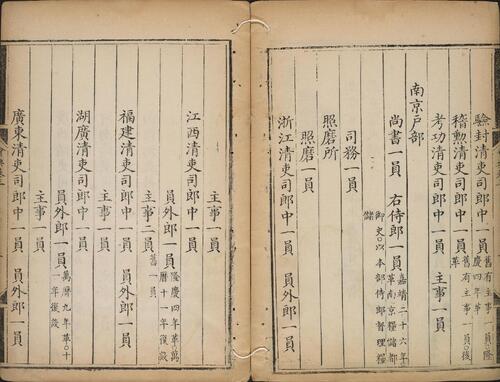 驗封清吏司郎中一員舊有主事一員隆慶四年革
稽勲清吏司郎中一員舊有主事一員後革
考功清吏司郎中一員 主事一員
南京戶部
尚書一員 右侍郎一員嘉靖二十六年革南京糧儲都御史○以本部侍郎督理糧儲
司務一員
照磨所
照磨一員
浙江清吏司郎中一員 員外郎一員
主事一員
江西清吏司郎中一員
員外郎一員隆慶四年革萬曆十一年復設
主事二員舊一員
福建清吏司郎中一員 員外郎一員
主事一員
湖廣清吏司郎中一員
員外郎一員萬曆九年革○十一年復設
主事一員
廣東清吏司郎中一員 員外郎一員